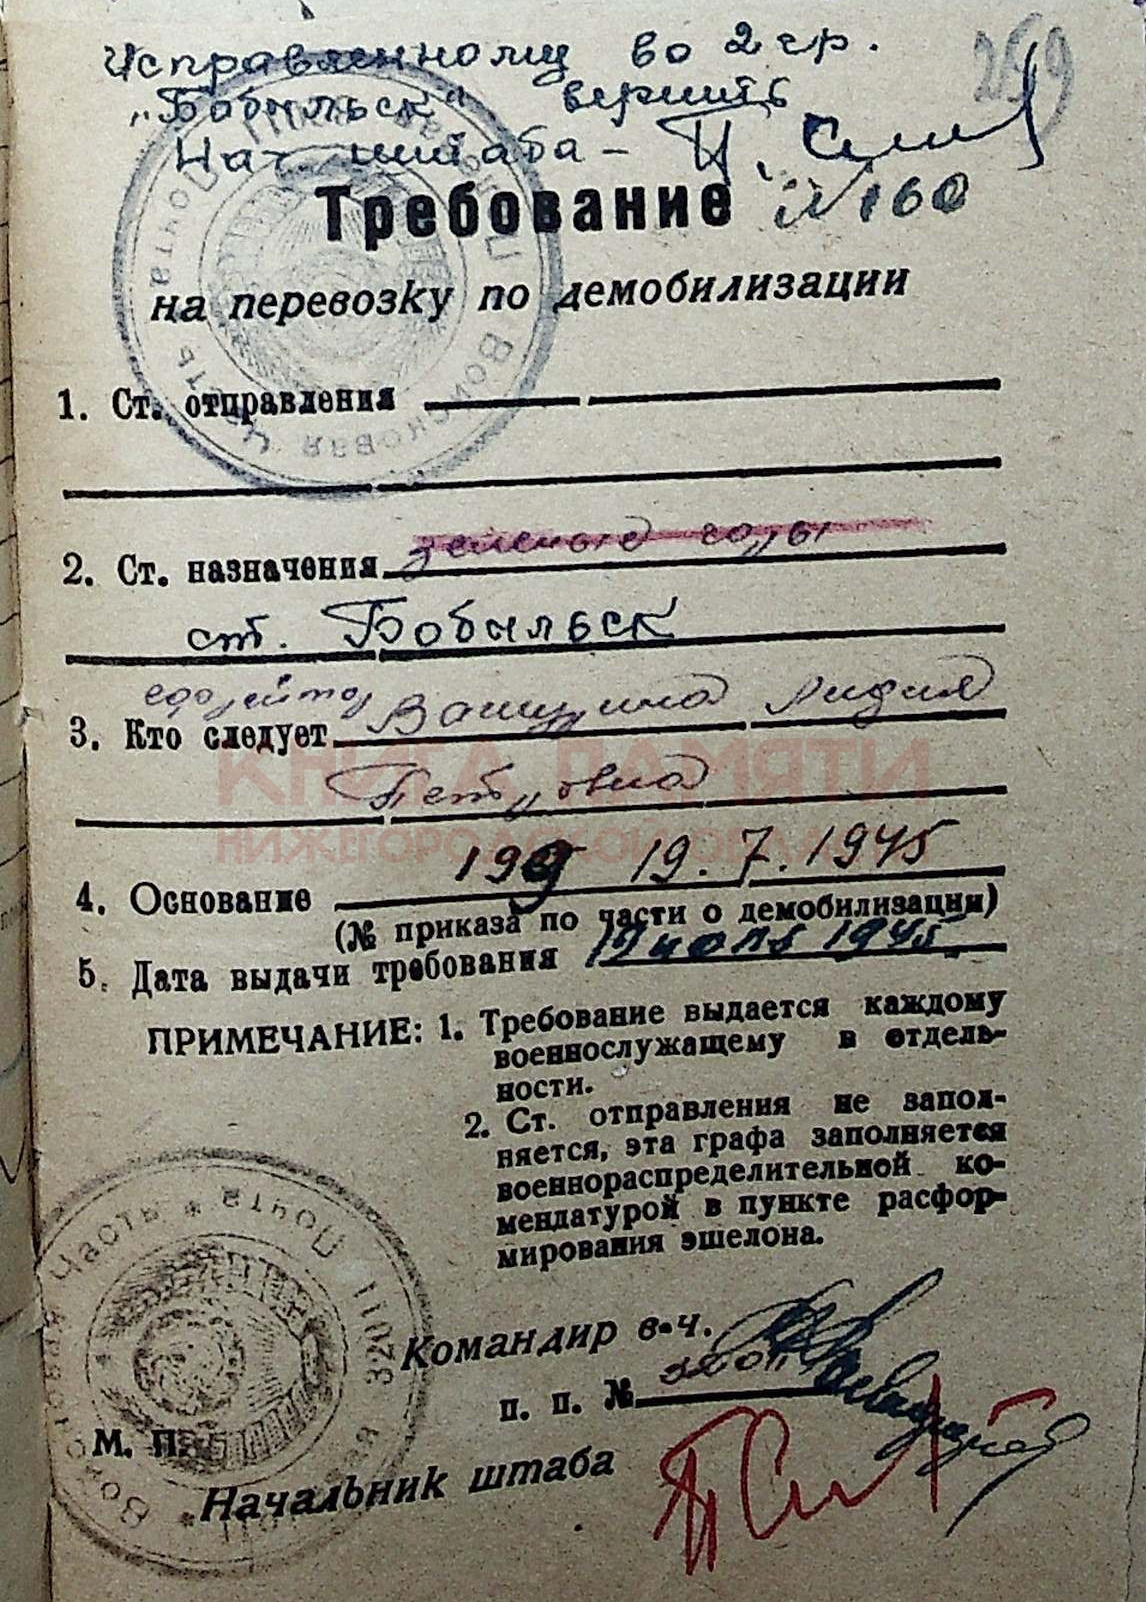 Исправленному во 2 гр.
"Бобыльск" верить
Нач. штаба -
259
Требование № 160
на перевозку по демобилизации
1. Ст. отправления
2. Ст. назначения зеленые
ст. Бобыльск
ефрейтор
3. Кто следует Вашурина Лидия
Петровна
КНИГА ПАМЯТИ
НИЖЕГОРОДСКОЙ ОБЛАСТИ
4. Основание 199 19.7.1945
(№ приказа по части о демобилизации)
5. Дата выдачи требования июля 1945
ПРИМЕЧАНИЕ: 1. Требование выдается каждому
военнослужащему в отдель-
ности.
2. Ст. отправления не запол-
няется, эта графа заполняется
военнораспределительной ко-
мендатурой в пункте расфор-
мирования эшелона.
Командир в-ч.
п. п. №
М. П.
Начальник штаба
Войсковая Часть * Полевая Почта
Войсковая Часть * Почта